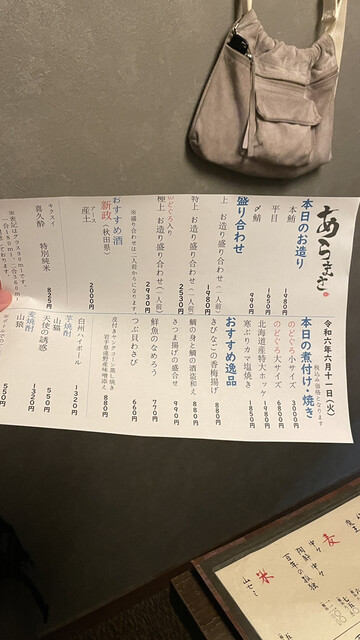 あらまさ
令和六年六月十一日（火）
税込み価格となります
本日のお造り
本鮪 1988円
平目 1650円
〆鯖 990円
盛り合わせ
上 お造り盛り合わせ（一人前） 1980円
特上 お造り盛り合わせ（一人前） 2530円
のどぐろ入り
極上 お造り盛り合わせ（一人前） 2930円
※盛り合わせは二人前からになります
おすすめ酒
新政（秋田県）
アース
産土 2000円
キクスイ
喜久酔 特別純米 825円
本日の煮付け・焼き
のどぐろ小サイズ 3000円
のどぐろ大サイズ 6800円
北海道産特大ホッケ 1980円
寒ぶりカマ塩焼き 1850円
おすすめ逸品
きびなごの香梅揚げ 880円
鯛の身と鯛の酒盗和え 880円
さつま揚げの盛合せ 990円
鮮魚のなめろう 770円
つぶ貝わさび 660円
皮付きヤングコーン蒸し焼き
岩手県遠野産味噌添え 880円
白州ハイボール 1320円
芋焼酎
山猫 550円
天使の誘惑 1320円
麦焼酎
山猿 550円
麦
中々
陶酔
百年の孤独
米
山セミ